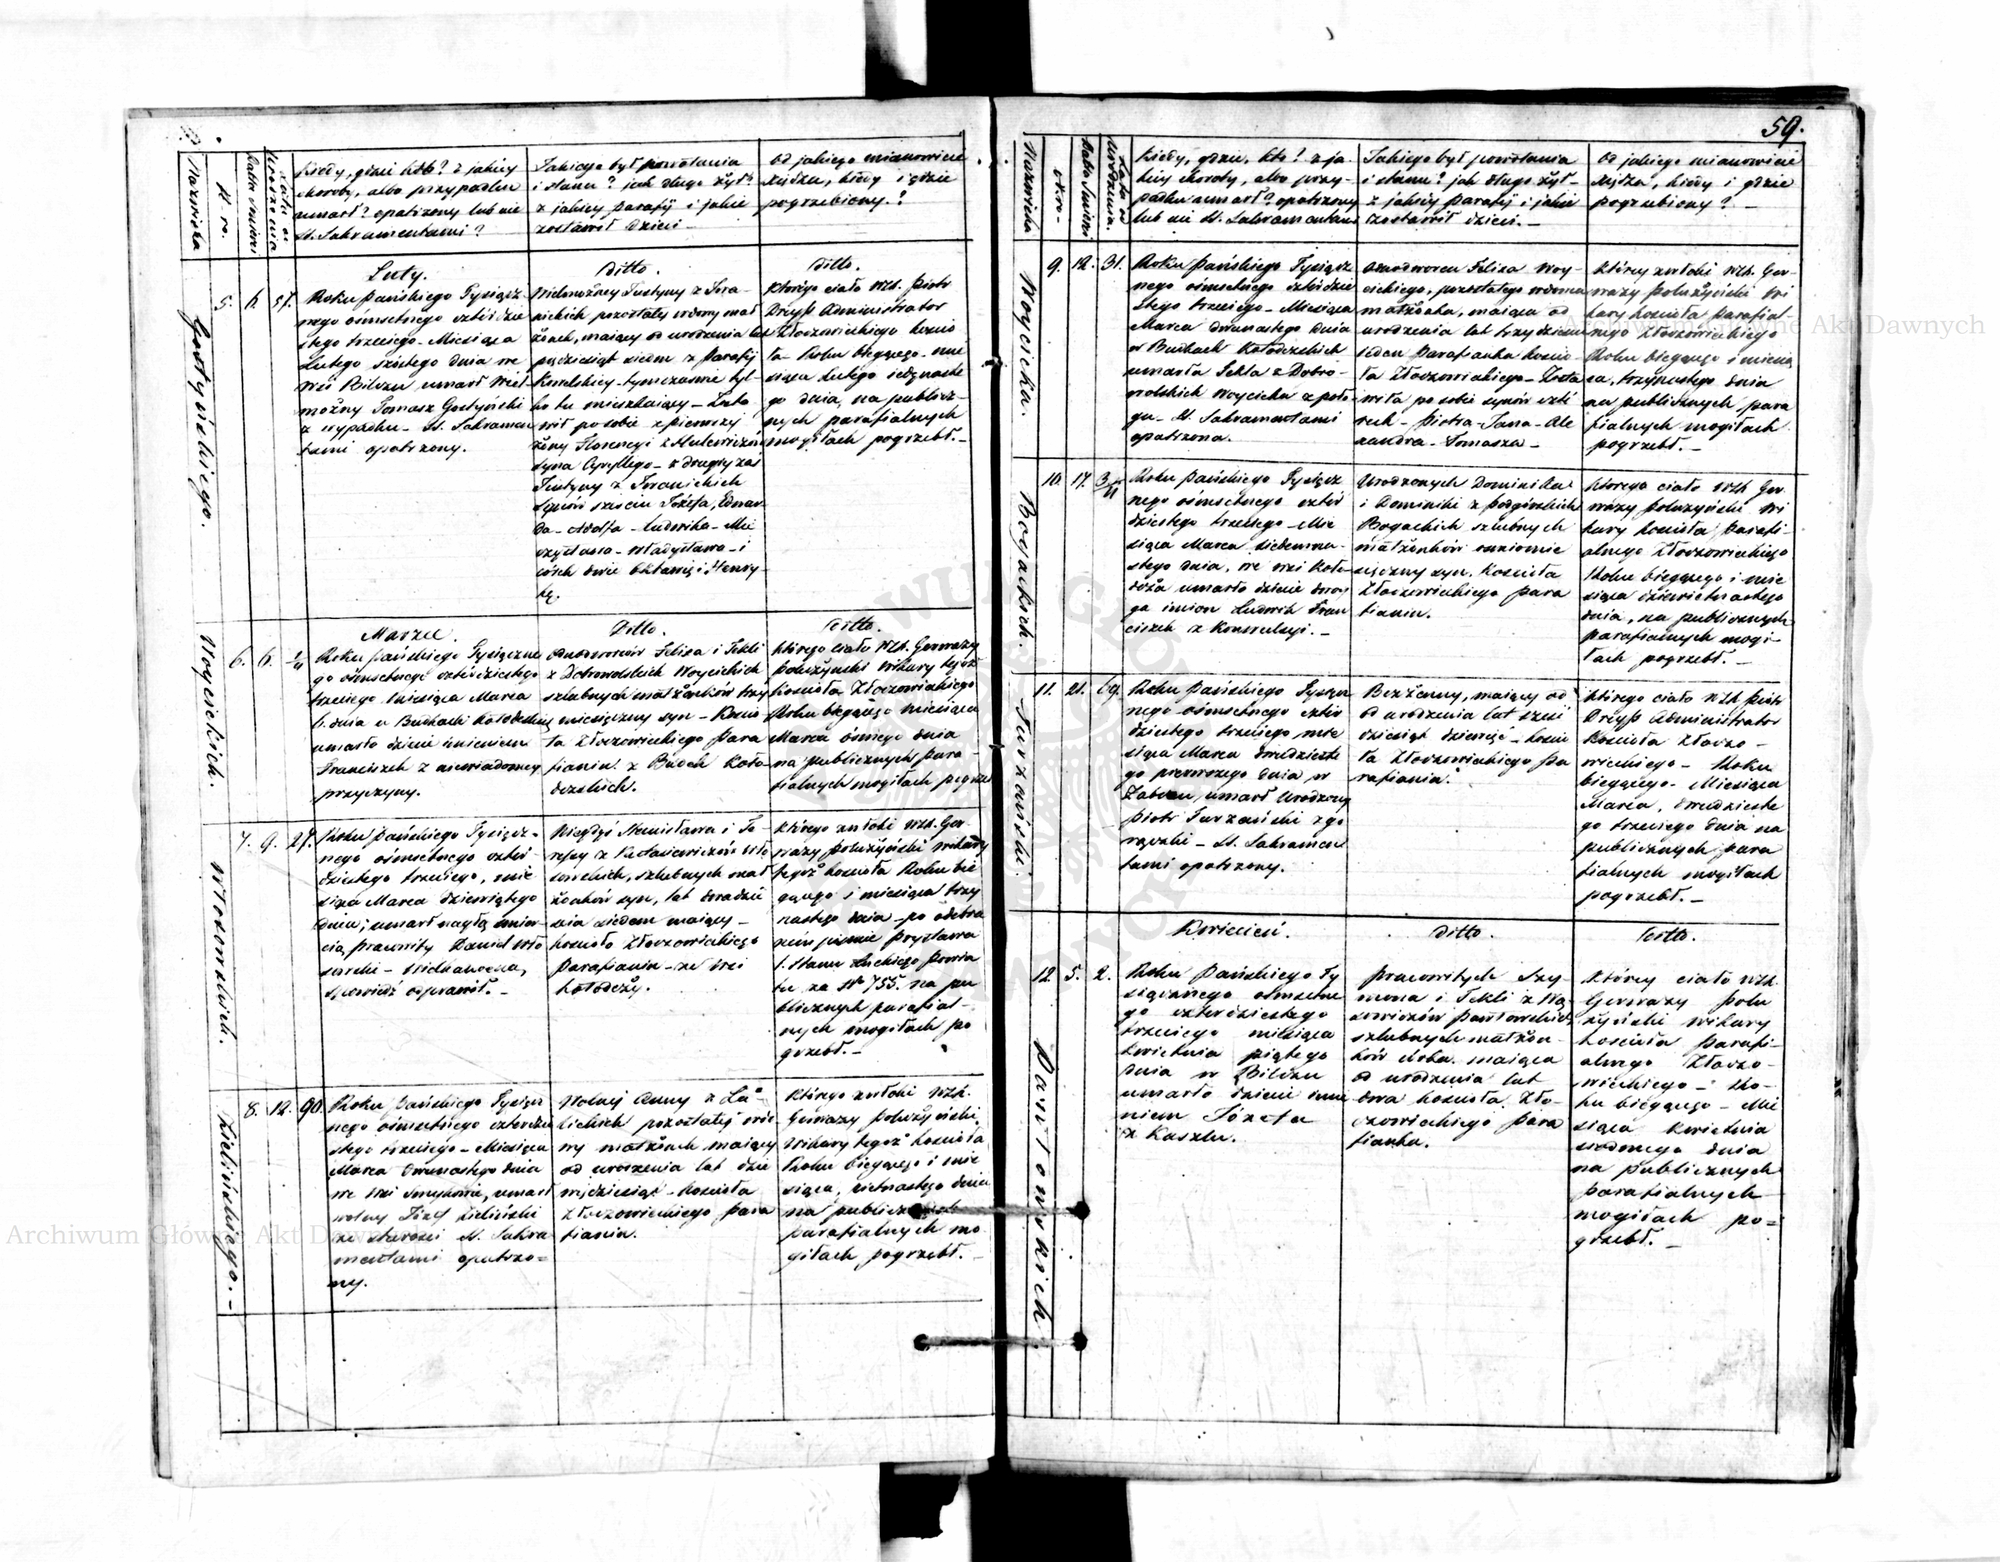 59.
Nazwiska
Nro.
Data Śmierci
Lata od Urodzenia
Kiedy, gdzie kto? z jakiey
choroby, albo przypadku
umarł? opatrzony lub nie
St. Sakramentami?
Jakiego był powołania
i stanu? jak długo żył?
z jakiey parafij i jakie
zostawił dzieci –
Od jakiego mianowicie
Xiędza, kiedy i gdzie
pogrzebiony?
Gostyńskiego.
5.
6.
57.
Luty.
Roku Pańskiego Tysiącz-
nego ośmsetnego czterdzie
stego trzeciego – Miesiąca
Lutego szóstego dnia we
Wsi Bilczu umarł Wiel-
możny Tomasz Gostyński
z wypadku – St. Sakramen
tami opatrzony.
Ditto.
Wielmożney Justyny z
pozostałey wdowy mał
żonek, maiący od urodzenia lat
pięćdziesiąt siedm z Parafij
tymczasowie tyl-
ko tu mieszkaiący – Zosta
wił po sobie z pierwszey
żony Florencyi z Hulewiczów
syna Cyryllego – z drugiey zaś
Justyny z
synów sześciu Józefa, Edwar
da – Adolfa – Ludwika – Mie
czysława – Władysława – i
córek dwie Oktawię i Henry-
kę.
Ditto.
Którego ciało WXh. Piotr
Dreyss Administrator
Złoczowieckiego kościo
ła – Roku bieżącego – mie
siąca Lutego iedynaste
go dnia, na publicz-
nych parafialnych
mogiłach pogrzebł. –
Woycickich.
6.
6.
Marzec.
Roku Pańskiego Tysiączne
go ośmsetnego czterdziestego
trzeciego Miesiąca Marca
6. dnia w Budkach Kołodeskich
umarło dziecie imieniem
Franciszek z niewiadomey
przyczyny.
Ditto.
Felixa i Tekli
z Dobrowolskich Woycickich
szlubnych małżonków trzy
miesięczny syn – Kościo
ła Złoczowieckiego Para
fianin z Budek Koło-
dezskich.
Ditto.
którego ciało WXh. Gerwazy
Położyński Wikary tegoż
Kościoła Złoczowieckiego
Roku bieżącego miesiąca
Marca ósmego dnia
na publicznych para
fialnych mogiłach pogrze
Włosowskich.
7.
9.
27.
Roku Pańskiego Tysiącz-
nego ośmsetnego czter-
dziestego trzeciego, mie
siąca Marca dziewiątego
dnia; umarł nagłą śmier-
cią pracowity Daniel Wło
sowski – Wielkanocną
spowiedź odprawił. –
Niegdyś Stanisława i Te-
resy z
szlubnych mał
żonków syn, lat dwadzie
ścia siedem maiący –
kościoła Złoczowieckiego
Parafianin – ze Wsi
Kołodeży.
którego zwłoki WXh. Ger-
wazy Położyński Wikary
tegoż kościoła Roku bie
żącego i miesiąca trzy
nastego dnia – po odebra
nem piśmie Prystawa
1. Stanu Łuckiego Powia
tu za No 755. na pu
blicznych parafial-
nych mogiłach po
grzebł. –
Zielińskiego. –
8.
12.
90.
Roku Pańskiego Tysiącz
nego ośmsetnego czterdzie
stego trzeciego – Miesiąca
Marca Dwunastego dnia
we Wsi Smykowie, umarł
wolny Józef Zieliński
ze starości St. Sakra
mentami opatrzo=
ny.
Wolney Anny z
pozostałey wdo
wy małżonek maiący
od urodzenia lat dzie
więćdziesiąt – Kościoła
Złoczowieckiego para
fianin.
Którego zwłoki WXh.
Gerwazy Położyński
Wikary tegoż kościoła
Roku bieżącego i mie
siąca, dnia
na publicznych
parafialnych mo
giłach pogrzebł. –
Nazwiska
Nro –
Data Śmierci
Lata od Urodzenia.
Kiedy, gdzie, kto? z ja-
kiey choroby, albo przy-
padku umarł? opatrzony
lub nie St. Sakramentami
Jakiego był powołania
i stanu? jak długo żył –
z jakiey parafij i jakie
zostawił dzieci. –
Od jakiego mianowicie
Xiędza, kiedy i gdzie
pogrzebiony? –
Woycicka.
9.
12.
31.
Roku Pańskiego Tysiącz
nego ośmsetnego czterdzie
stego trzeciego – Miesiąca
Marca dwunastego dnia
w Budkach Kołodezskich
umarła Tekla z Dobro-
wolskich Woycicka z poło-
gu – St. Sakramentami
opatrzona.
Felixa Woy-
cickiego, pozostałego wdowca
małżonka, maiąca od
urodzenia lat trzydzieści
ieden Parafianka kościo-
ła Złoczowieckiego – Zosta
wiła po sobie synów czte
rech – Piotra – Jana – Ale
xandra – Tomasza –
którey zwłoki WXh. Ger-
wazy Położyński Wi
kary kościoła parafial-
nego Złoczowieckiego
Roku bieżącego i miesią
ca, trzynastego dnia
na publicznych para
fialnych mogiłach
pogrzebł. –
Bogackich.
10.
17.
Roku Pańskiego Tysiącz
nego ośmsetnego czter
dziestego trzeciego – Mie
siąca Marca siedemna-
stego dnia, we wsi Koło-
deża umarło dziecie dwoy
ga imion Ludwik Fran
ciszek z Konwulsyi. –
Urodzonych Dominika
i Dominiki z Podgórskich
Bogackich szlubnych
małżonków ośmiomie
sięczny syn, Kościoła
Złoczowieckiego para
fianin.
Którego ciało WXh. Ger
wazy Położyński Wi
kary kościoła parafi-
alnego Złoczowieckiego
Roku bieżącego i mie
siąca dziewietnastego
dnia, na publicznych
parafialnych mogi-
łach pogrzebł. –
Turzański.
11.
21.
69.
Roku Pańskiego Tysiącz
nego ośmsetnego czter
dziestego trzeciego mie
siąca Marca dwudzieste
go pierwszego dnia, w
umarł Urodzony
Piotr Turzański z go
rączki – St. Sakramen
tami opatrzony.
Bezżenny, maiący od
od urodzenia lat sześć
dziesiąt dziewięć – kościo
ła Złoczowieckiego pa
rafianin.
którego ciało WXh Piotr
Dreyss Administrator
Kościoła Złoczo –
wieckiego – Roku
bieżącego – Miesiąca
Marca, dwudzieste
go trzeciego dnia na
publicznych para
fialnych mogiłach
pogrzebł. –
Pawłowskich.
12.
5.
2.
Kwiecień.
Roku Pańskiego Ty
siącznego ośmsetne
go czterdziestego
trzeciego miesiąca
Kwietnia piątego
dnia w Bilczu
umarło dziecie imie
niem Józefa
z Kaszlu.
Ditto.
Pracowitych Szy
mona i Tekli z
Pawłowskich
szlubnych małżon-
ków córka, maiąca
od urodzenia lat
dwa kościoła Zło-
czowieckiego para
fianka.
Ditto.
Którey ciało WXh.
Gerwazy Poło
żyński Wikary
kościoła parafi-
alnego Złoczo-
wieckiego – Ro-
ku bieżącego – Mie
siąca Kwietnia
siódmego dnia
na publicznych
parafialnych
mogiłach po=
grzebł. –
Archiwum Główne Akt Dawnych
Archiwum Główne Akt Dawnych